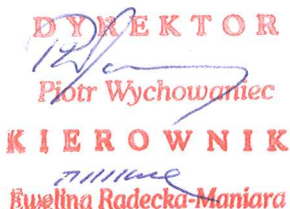 DYREKTOR
Piotr Wychowaniec
KIEROWNIK
Ewelina Radecka-Maniara